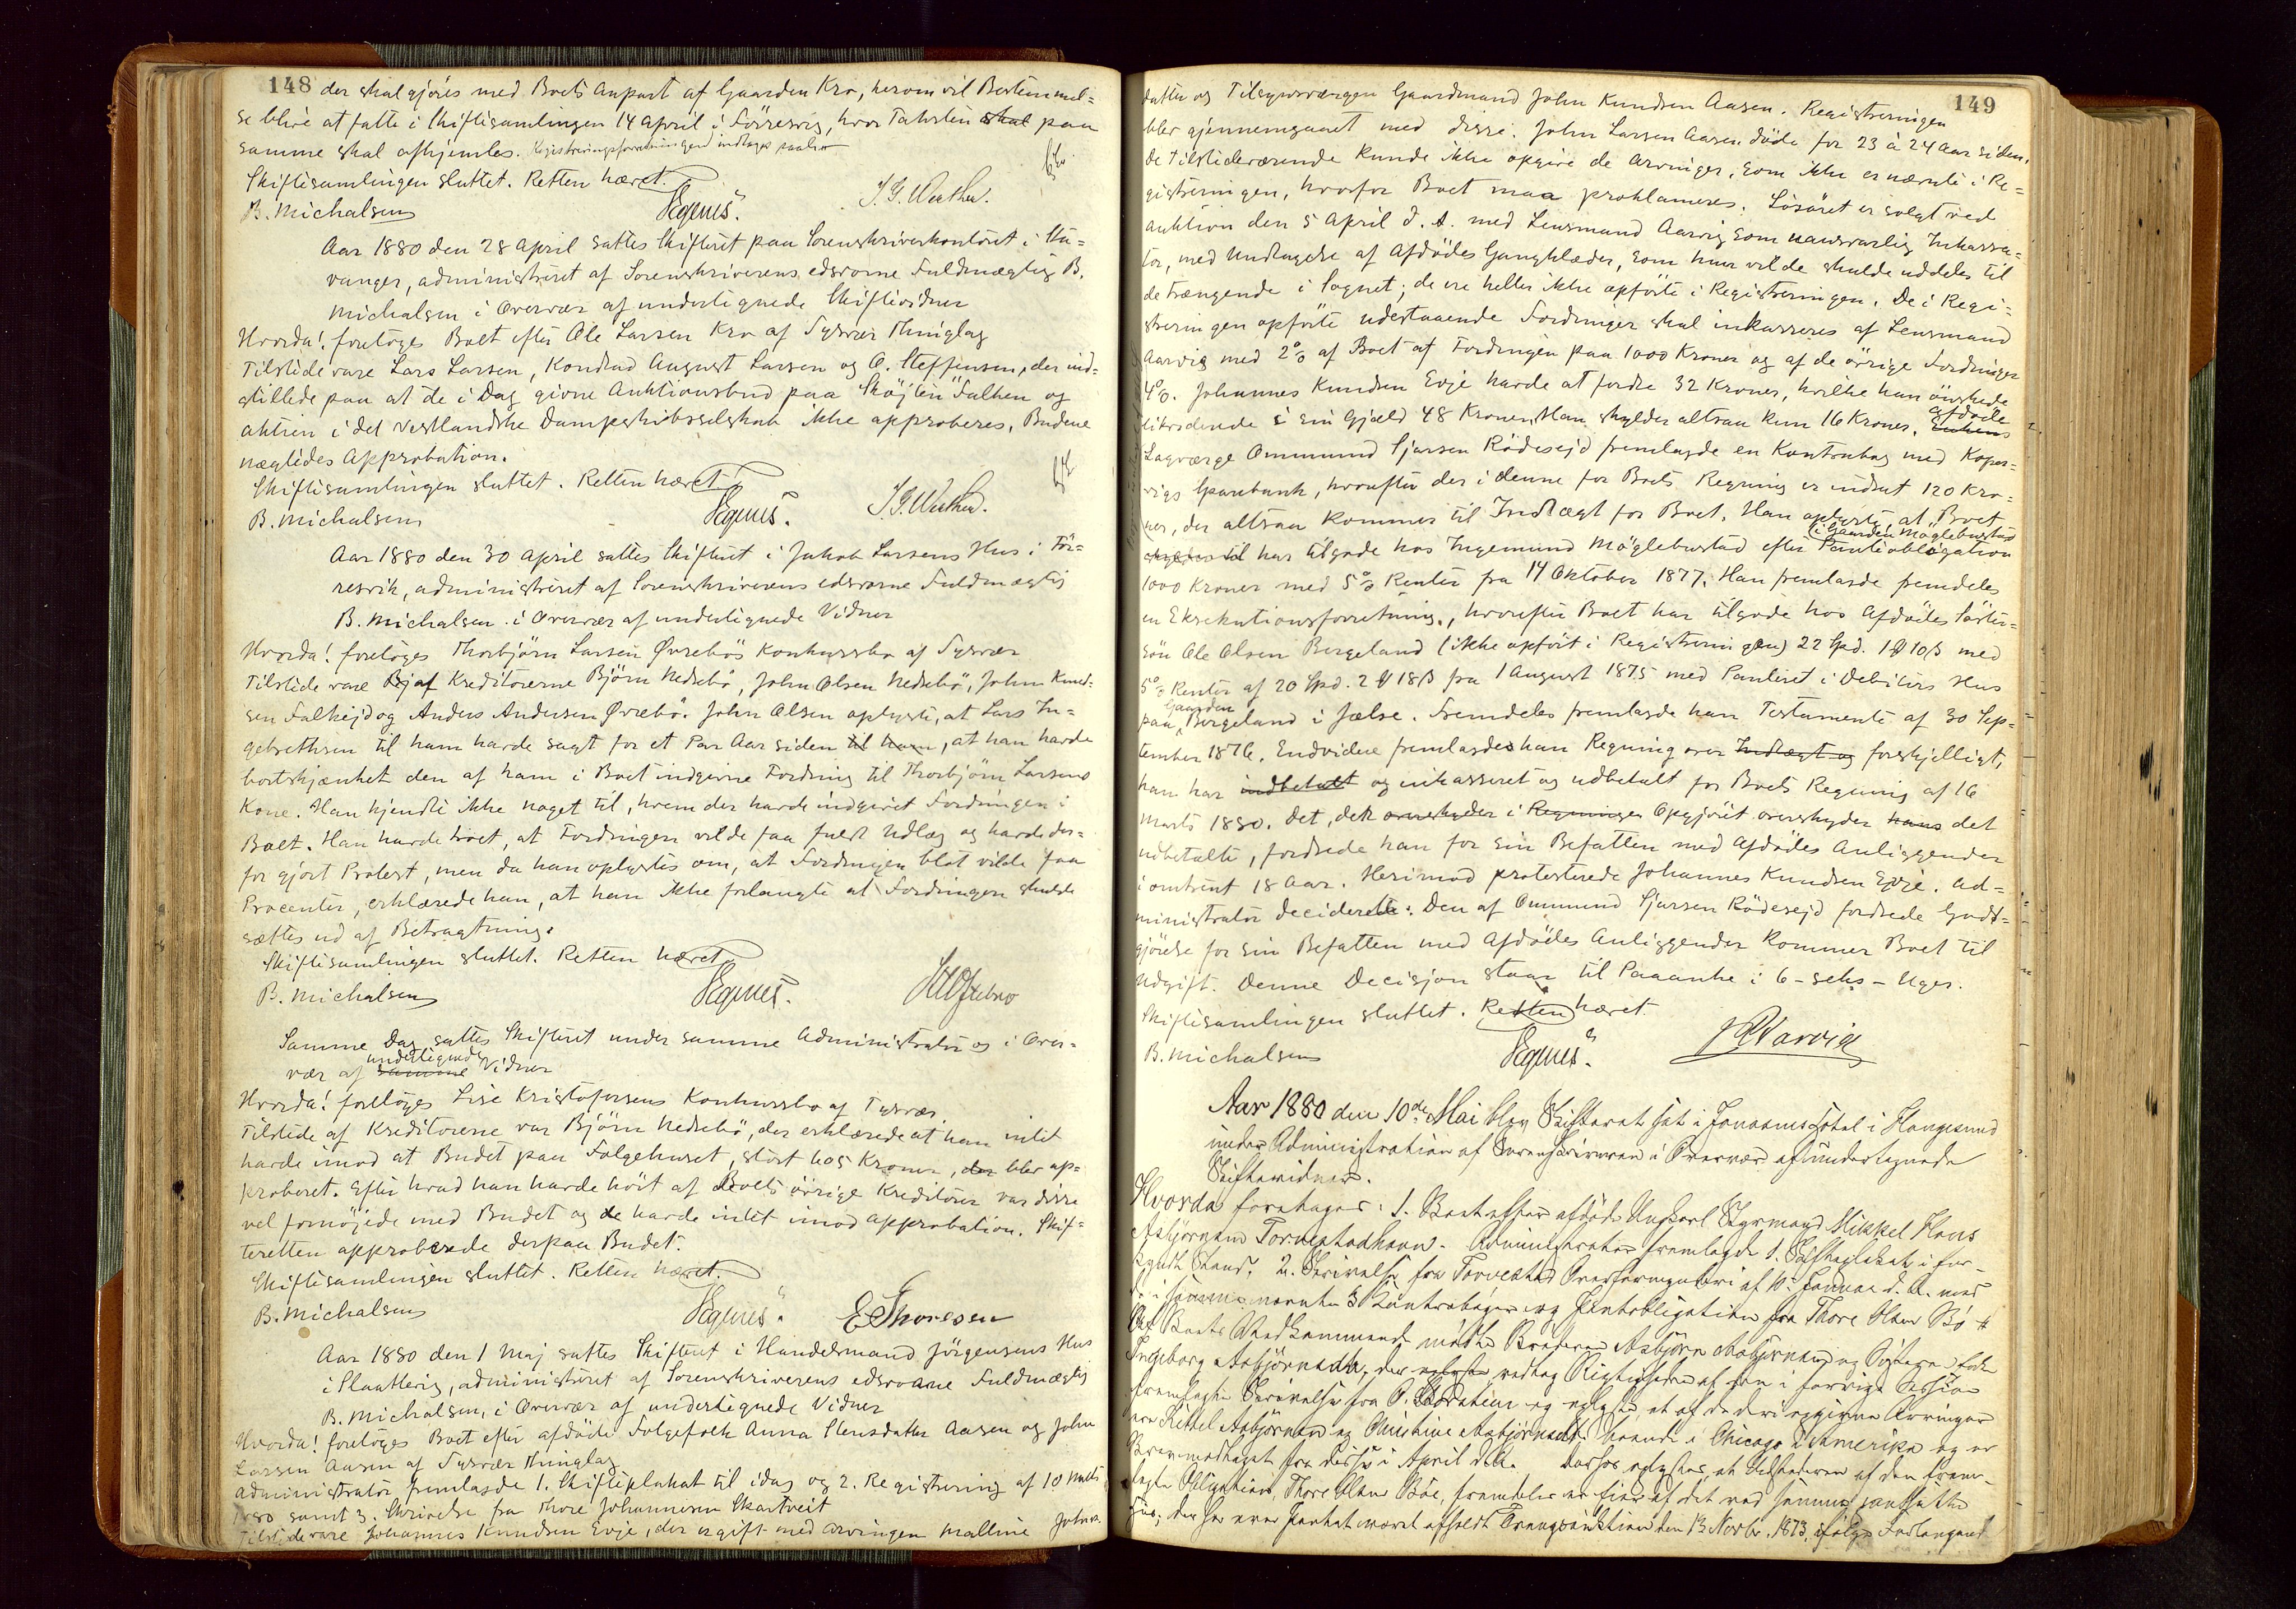 148 der skal gjöres med Boets Anpart af Gaarden Kro, herom vil Bestemmel=
se blive at fatte i Skiftesamlingen 14 April i Förresvig, hvor Taksten skal paa
samme skal afhjemles. Registreringsforretningen indtages saalr
Skiftesamlingen sluttet. Retten hævet.
B. Michalsen Segnus. J. G. Weuther.
Aar 1880 den 28 April sattes Skifteret paa Sorenskriverkontoret i Sta=
vanger, administreret af Sorenskriverens edsvorne Fuldmægtig B.
Michalsen i Overvær af undertegnede Skiftevidner
Hvorda! foretöges Boet efter Ole Larsen Kro af Tysvær Thinglag
Tilstede vare Lars Larsen, Kondrad August Larsen og O. Steffensen, der ind=
stillede paa at de i Dag givne Auktionsbud paa Skøjten "Falken" og
aktien i det vestlandske Dampskibsselskab ikke approberes. Budene
nægtedes Approbation.
Skiftesamlingen sluttet. Retten hævet.
B. Michalsen Segnus. J. G. Weuther.
Aar 1880 den 30 April sattes Skifteret i Jakob Larsens Hus i För=
resvik, administreret af Sorenskriverens edsvorne Fuldmægtig
B. Michalsen i Overvær af undertegnede Vidner
Hvorda! foretöges Thorbjörn Larsen Øvrebös Konkursbo af Tysvær
Tilstede vare Bj af Kreditorerne Björn Nedrebö, John Olsen Nedrebö, John Knud=
sen Falkejd og Anders Andersen Øvrebö. John Olsen oplyste, at Lars In=
gebrethsen til ham havde sagt for et Par Aar siden til ham, at han havde
bortskjænket den af ham i Boet indgivne Fordring til Thorbjörn Larsens
Kone. Han kjendte ikke noget til, hvem der havde indgivet Fordringen i
Boet. Han havde troet, at Fordringen vilde faa fuldt Udlæg og havde der=
for gjort Protest, men da han oplystes om, at Fordringen blot vilde faa
Procenter, erklærede han, at han ikke forlangte at Fordringen skulde
sættes ud af Betragtning.
Skiftesamlingen sluttet. Retten hævet
B. Michalsen Segnus.
Samme Dag sattes Skifteret under samme Administrator og i Over=
undertegnede
vær af samme Vidner
Hvorda! foretöges Lise Kristofersens Konkursbo af Tysvær.
Tilstede af Kreditorerne var Björn Nedrebö, der erklærede at han intet
havde imod at Budet paa Folgehuset, stort 405 Kroner, der blev ap=
proberet. Efter hvad han havde hört af Boets övrige Kreditorer var disse
vel fornöjede med Budet og de havde intet imod Approbation. Skif=
teretten approberede derpaa Budet.
Skiftesamlingen sluttet. Retten hævet.
B. Michalsen Segnus. E Thoresen
Aar 1880 den 1 Maj sattes Skifteret i Handelsmand Jörgensens Hus
i Slaattevig, administreret af Sorenskriverens edsvorne Fuldmægtig
B. Michalsen, i Overvær af undertegnede Vidner
Hvorda! foretöges Boet efter afdöde Folgefolk Anna Stensdatter Aasen og John
Larsen Aasen af Tysvær Thinglag
Administrator fremlagde 1. Skifteplakat til idag og 2. Registrering af 10 Marts
1880 samt 3. Skrivelse fra Thore Johannesen Skartveit
Tilstede vare Johannes Knudsen Evje, der er gift med Arvingen Malline Johns=
149
datter og Tilsynsværgen Gaardmand John Knudsen Aasen. Registreringen
blev gjennemgaaet med disse. John Larsen Aasen döde for 23 à 24 Aar siden.
De tilstedeværende kunde ikke opgive de Arvinger, som ikke er nævnte i Re=
gistreringen, hvorfor Boet maa proklameres. Lösöret er solgt ved
Auktion den 5 April d. A. med Lensmand Aarvig som uansvarlig Inkassa=
tor, med Undtagelse af Afdödes Gangklæder, som hun vilde skulde uddeles til
de trængende i Sognet; de ere heller ikke opförte i Registreringen. De i Regi=
streringen opförte udestaaende Fordringer skal inkasseres af Lensmand
Aarvig med 2% af Boet af Fordringen paa 1000 Kroner og af de övrige Fordringer
4%. Johannes Knudsen Evje havde at fordre 32 Kroner, hvilke han önskede
afdöde
likviderede i sin Gjæld 48 Kroner. Han skylder altsaa kun 16 Kroner. Enkens
Lagværge Ommund Sjursen Rödesejd fremlagde en Kontrabog med Koper=
vigs Sparebank, hvorefter der i denne for Boets Regning er indsat 120 Kro=
ner, der altsaa kommer til Indtægt for Boet. Han oplyste, at Boet
i Gaarden Möglebustad
har tilgode hos Ingemund Möglebustad efter Panteobligation
1000 Kroner med 5% Renter fra 14 Oktober 1877. Han fremlagde fremdeles
en Eksekutionsforretning, hvorefter Boet har tilgode hos Afdödes Söster=
sön Ole Olsen Bergeland (ikke opfört i Registreringen) 22 Spd. 1 ₰ 10 ß med
5% Renter af 20 Spd. 2 ₰ 18 ß fra 1 August 1875 med Panteret i Debitors Hus
Gaarden
paa Bergeland i Jælse. Fremdeles fremlagde han Testamente af 30 Sep=
tember 1876. Endvidere fremlagdes han Regning over Indtægt og forskjelligt,
han har indbetalt og inkasseret og udbetalt for Boets Regning af 16
Marts 1880. Det, det overskyder i Regningen Opgjöret overskyder hans det
udbetalte, fordrede han for sin Befatten med Afdödes Anliggender
i omtrent 18 Aar. Herimod protesterede Johannes Knudsen Evje. Ad=
ministrator deciderede: Den af Ommund Sjursen Rödesejd fordrede Godt=
gjörelse for sin Befatten med Afdödes Anliggender kommer Boet til
Udgift. Denne Decisjon staar til Paaanke i 6-seks-Uger.
Skiftesamlingen sluttet. Retten hævet
B. Michalsen Segnus. Aarvig
Aar 1880 den 10de Mai blev Skifteret sat i Jonassens Hotel i Haugesund
under Administration af Sorenskriveren i Overvær af undertegnede
Skiftevidner.
Hvorda foretages: 1. Boet efter afdöde Ungkarl Styrmand Mikkel Hans
Asbjörnsen Torvestadhavn. Administrator fremlagde 1. Skifteplakat i for-
kyndt Stand, 2. Skrivelse fra Torvestad Overformynderi af 10. Januar d. A. med
de i samme nævnte 3 Kontrabøger og Panteobligation fra Thore Olsen Bö
Af Boets Vedkommende mödte Bröderen Asbjörn Asbjörnsen og Sösteren
Ingeborg Asbjörnsdtr., der oplyste vedtog Rigtigheden af den i forrige Session
fremlagte Skrivelse fra og oplyste, at af de deri opgivne Arvinger
ere Kittel Asbjörnsen og Christine Asbjörnsdtr. boende i Chicago i Amerika og er
Brev modtaget fra disse i April d. A. Derhos oplystes, at Udstederen af den frem-
lagte Obligation, Thore Olsen Böe, fremdeles er Eier af det ved samme pantsatte
Hus; der har over Pantet været afholdt Tvangsauktion den 13 Novbr. 1873, ifölge Forlangende